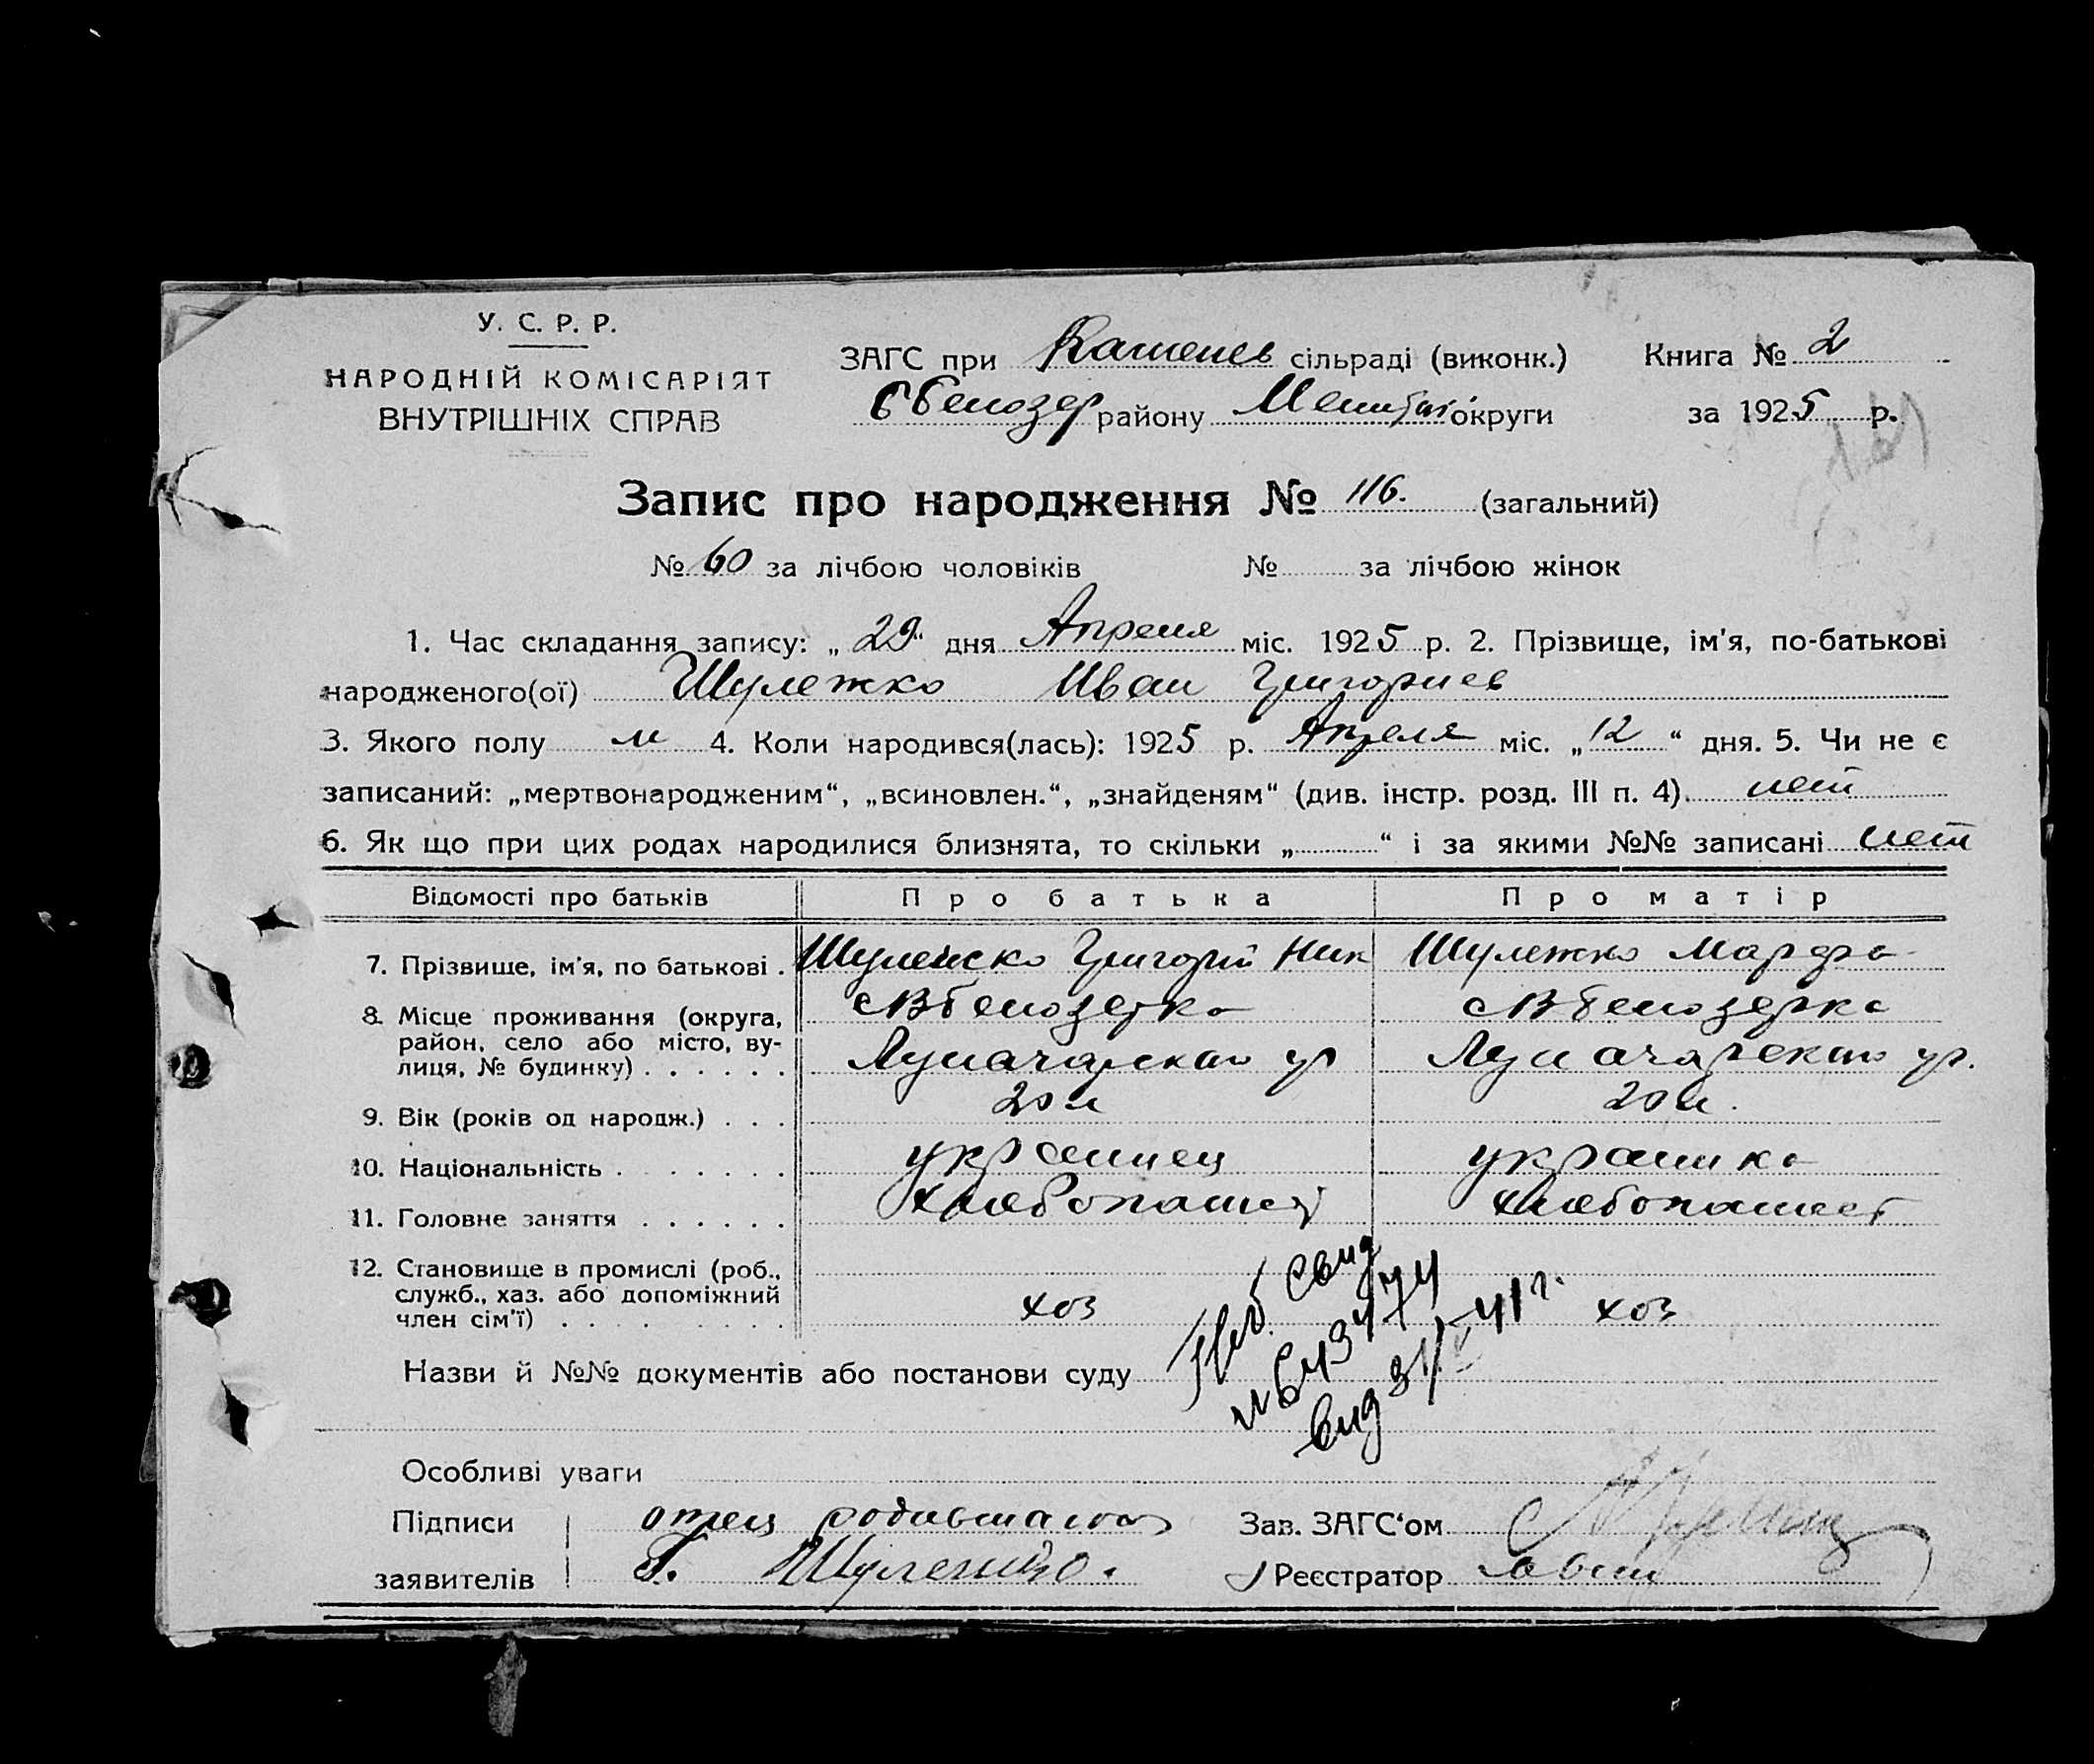 У. С. Р. Р.
НАРОДНІЙ КОМІСАРІЯТ
ВНУТРІШНІХ СПРАВ
ЗАГС при Каменев сільраді (виконк.) Книга № 2
району округи за 1925 р.
Запис про народження № 116. (загальний)
№ 60 за лічбою чоловіків № за лічбою жінок
1. Час складання запису: „ 29 “ дня Апреля міс. 1925 р. 2. Прізвище, ім'я, по-батькові
народженого(ої) Шулежко Иван Григориев
3. Якого полу м 4. Коли народився(лась): 1925 р. Апреля міс. „ 12 “ дня. 5. Чи не є
записаний: „мертвонародженим“, „всиновлен.“, „знайденям“ (див. інстр. розд. III п. 4). нет
6. Як що при цих родах народилися близнята, то скільки „ “ і за якими №№ записані нет
Відомості про батьків Про батька Про матір
7. Прізвище, ім'я, по батькові . Шулежко Григорий Ник Шулежко Марфа
8. Місце проживання (округа, с В белозерка с В белозерка
район, село або місто, ву- Луначарская ул Луначарская ул.
лиця, № будинку) . . . . . .
9. Вік (років од народж.) . . . 20 л 20 л.
10. Національність . . . . . . . украинец украинка
11. Головне заняття . . . . . . хлебопашест хлебопашест
12. Становище в промислі (роб.,
служб., хаз. або допоміжний хоз хоз
член сім'ї) . . . . . . . . .
Назви й №№ документів або постанови суду
свид
Особливі уваги
Підписи отец Зав. ЗАГС‘ом
заявителів Г. Шулежко. Реєстратор